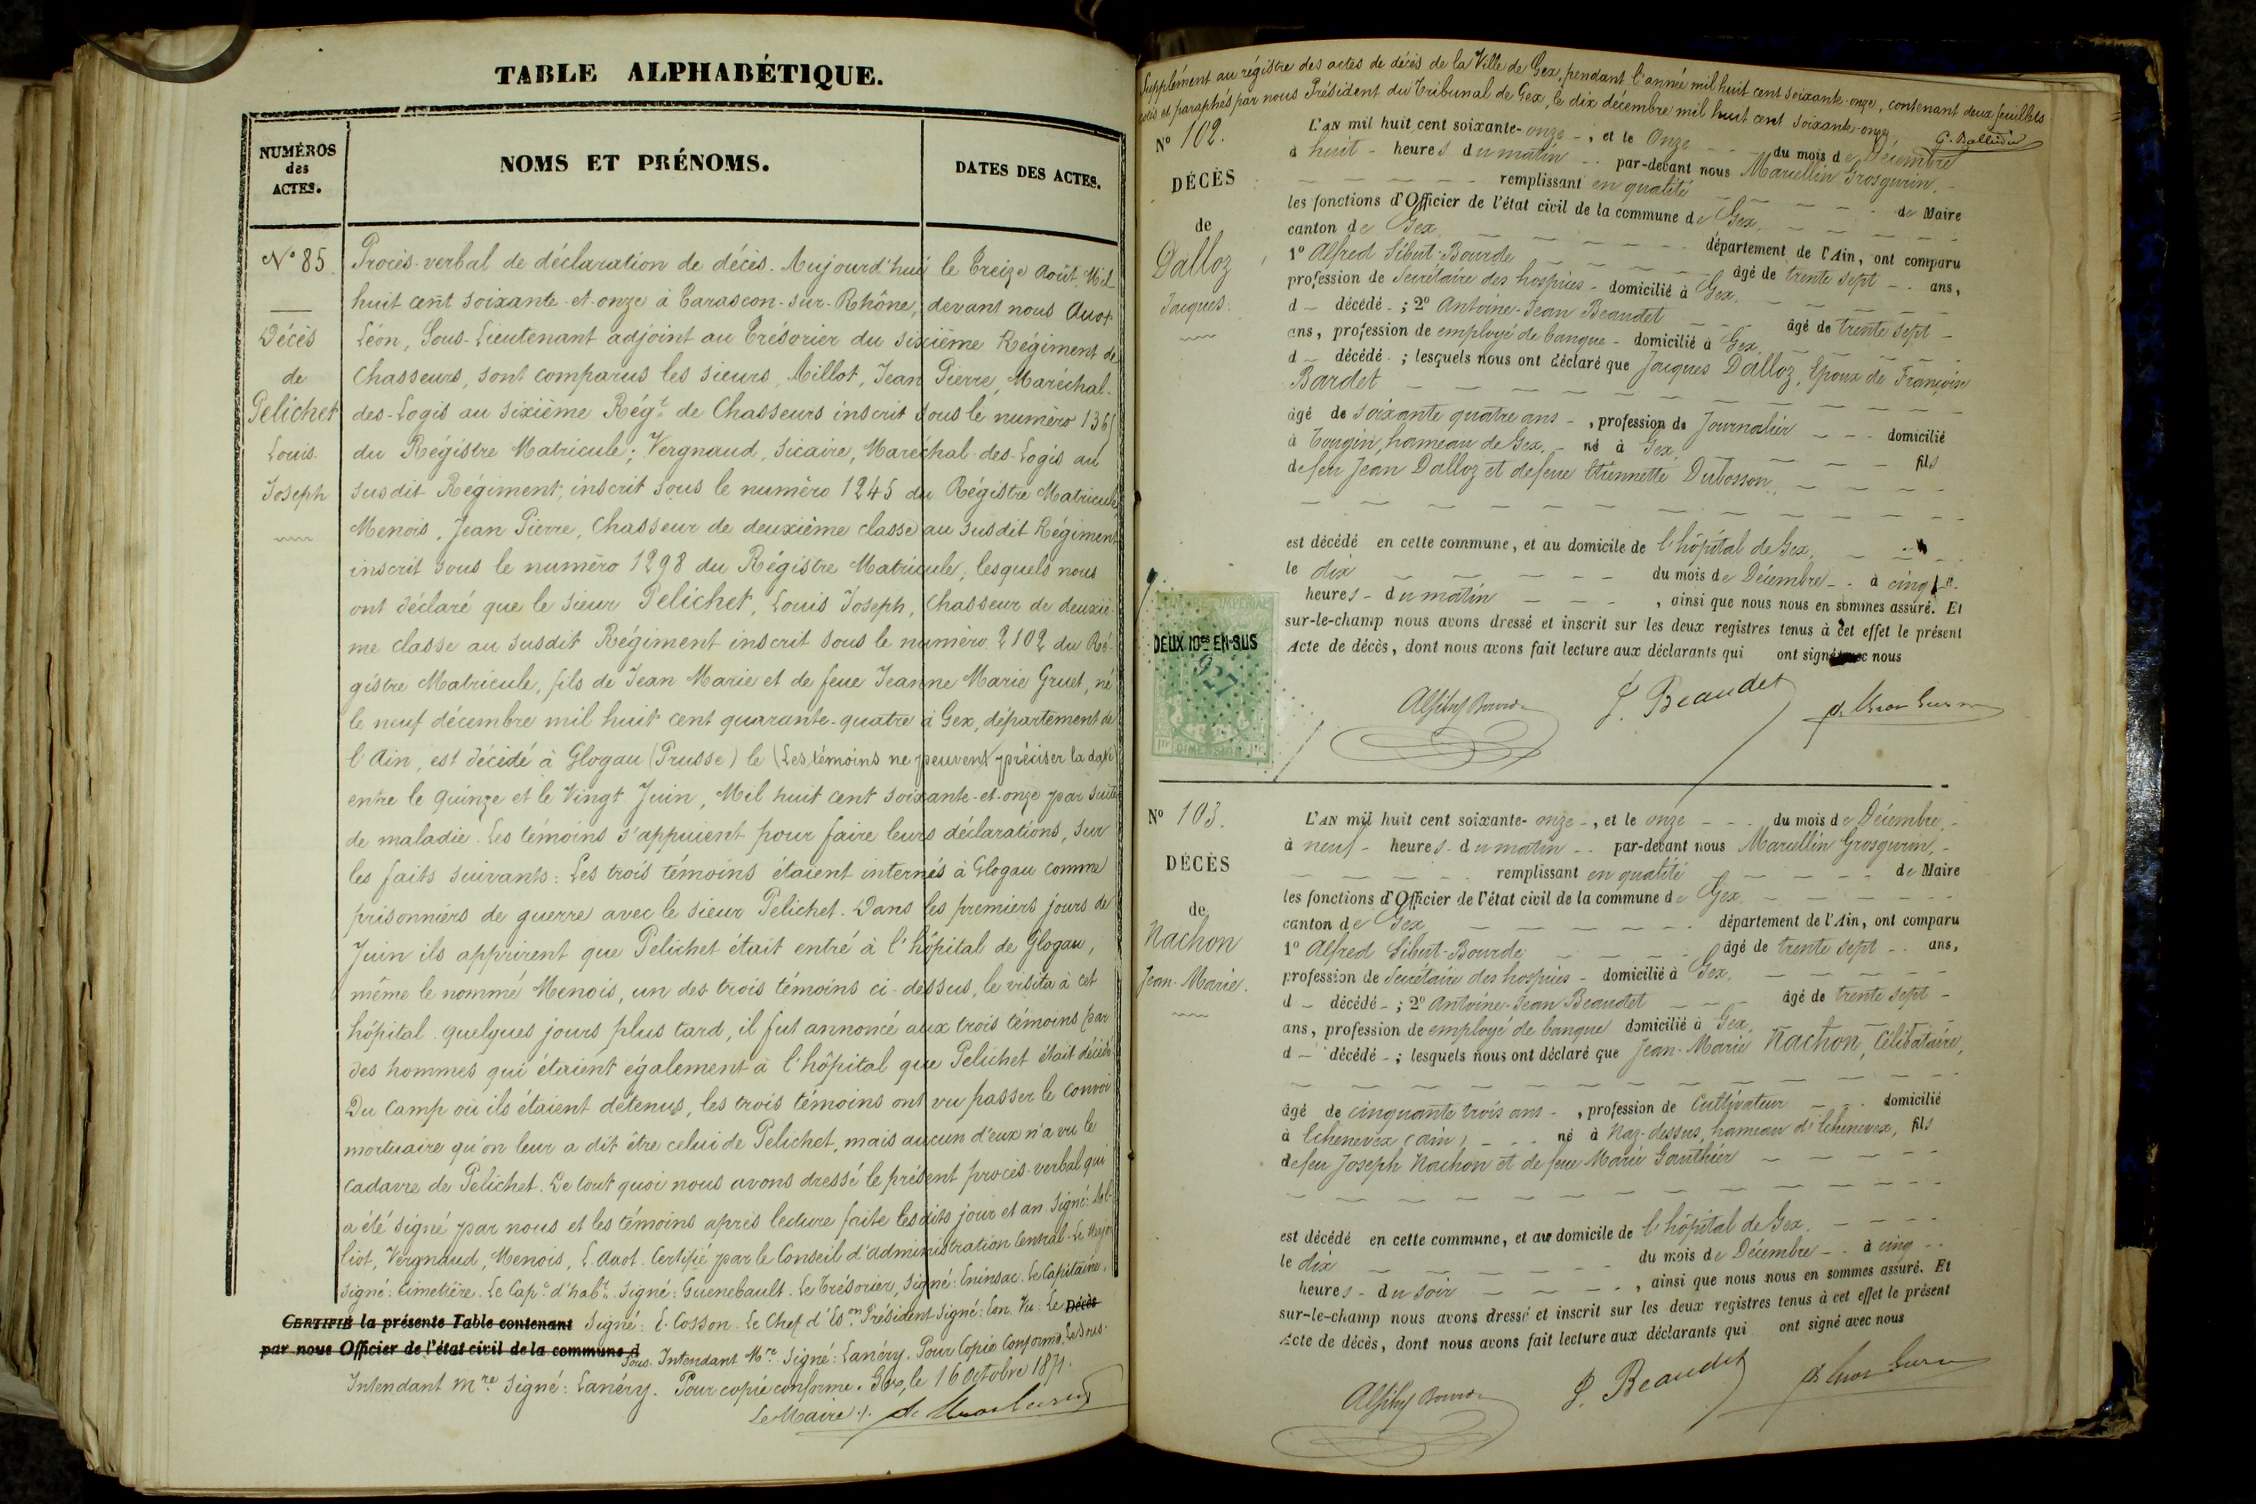 TABLE ALPHABÉTIQUE.
NUMÉROS
des
ACTES.
NOMS ET PRÉNOMS.
DATES DES ACTES.
N° 85
Décès
de
Pelichet
Louis
Joseph
Procès-verbal de déclaration de décès. Aujourd'hui le Treize Août, Mil
huit cent soixante-et-onze à Tarascon-sur-Rhône, devant nous Auot
Léon, Sous-Lieutenant adjoint au Trésorier du sixième Régiment de
Chasseurs, sont comparus les sieurs, Milliot, Jean Pierre, Maréchal-
des-Logis au sixième Régt de Chasseurs inscrit sous le numéro 1365
du Régistre Matricule; Vergnaud, Sicaire, Maréchal-des-Logis au
susdit Régiment, inscrit sous le numéro 1245 du Régistre Matricule,
Menois, Jean Pierre, Chasseur de deuxième classe au susdit Régiment
inscrit sous le numéro 1298 du Régistre Matricule, lesquels nous
ont déclaré que le sieur Pelichet, Louis Joseph, Chasseur de deuxiè-
me classe au susdit Régiment inscrit sous le numéro 2102 du Ré-
gistre Matricule, fils de Jean Marie et de feue Jeanne Marie Gruet, né
le neuf décembre mil huit cent quarante-quatre à Gex, département de
l'Ain, est décédé à Glogau (Prusse) le (Les témoins ne peuvent préciser la date)
entre le Quinze et le Vingt Juin, Mil huit cent soixante-et-onze par suite
de maladie. Les témoins s'appuient pour faire leurs déclarations, sur
les faits suivants: Les trois témoins étaient internés à Glogau comme
prisonniers de guerre avec le sieur Pelichet. Dans les premiers jours de
Juin ils apprirent que Pelichet était entré à l'hôpital de Glogau,
même le nommé Menois, un des trois témoins ci-dessus, le visita à cet
hôpital. Quelques jours plus tard, il fut annoncé aux trois témoins par
des hommes qui étaient également à l'hôpital que Pelichet était décédé
Du Camp où ils étaient détenus, les trois témoins ont vu passer le convoi
mortuaire qu'on leur a dit être celui de Pelichet, mais aucun d'eux n'a vu le
cadavre de Pelichet. De tout quoi nous avons dressé le présent procès-verbal qui
a été signé par nous et les témoins après lecture faite lesdits jour et an. Signé: Mil-
liot, Vergnaud, Menois, L. Auot. Certifié par le Conseil d'administration Central. Le Major
Signé: Cimetière. Le Cape d'habt Signé: Guenebault. Le Trésorier, Signé: Le Capitaine,
CERTIFIÉ la présente Table contenant Signé: E. Cosson. Le Chef d'Eson Président Signé: Vu: Le Décès
par nous Officier de l'état civil de la commune d
Sous Intendant Mre Signé: Lanéry. Pour Copie Conforme, Le Sous-
Intendant Mre Signé: Lanéry. Pour copie conforme. Gex, le 16 Octobre 1871.
Le Maire.
Supplément au régistre des actes de décès de la Ville de Gex, pendant l'année mil huit cent soixante-onze, contenant deux feuillets
cotés et paraphés par nous Président du Tribunal de Gex, le dix décembre mil huit cent soixante-onze
N° 102.
DÉCÈS
de
Dalloz
Jacques
L'AN mil huit cent soixante-onze, et le Onze du mois de Décembre
à huit heures du matin par-devant nous Marcellin Grosgurin,
remplissant en qualité de Maire
les fonctions d'Officier de l'état civil de la commune de Gex
canton de Gex département de l'Ain, ont comparu
1° Alfred Sibut-Bourde âgé de trente sept ans,
profession de Secrétaire des hospices domicilié à Gex,
d décédé; 2° Antoine-Jean Beaudet âgé de trente sept
ans, profession de employé de banque domicilié à Gex,
d décédé; lesquels nous ont déclaré que Jacques Dalloz, Epoux de Françoise
Bardet
âgé de soixante quatre ans, profession de Journalier domicilié
à Tougin, hameau de Gex, né à Gex, fils
de feu Jean Dalloz et de feue Etiennette Dubosson,
est décédé en cette commune, et au domicile de l'hôpital de Gex,
le dix du mois de Décembre à cinq
heures du matin, ainsi que nous nous en sommes assuré. Et
sur-le-champ nous avons dressé et inscrit sur les deux registres tenus à cet effet le présent
Acte de décès, dont nous avons fait lecture aux déclarants qui ont signé avec nous
IMPÉRIAL
DEUX 10es EN SUS
927
DIMENSION
J. Beaudet
N° 103.
DÉCÈS
de
Nachon
Jean-Marie.
L'AN mil huit cent soixante-onze, et le onze du mois de Décembre,
à neuf heures du matin par-devant nous Marcellin Grosgurin,
remplissant en qualité de Maire
les fonctions d'Officier de l'état civil de la commune de Gex
canton de Gex département de l'Ain, ont comparu
1° Alfred Sibut-Bourde âgé de trente sept ans,
profession de Secrétaire des hospices domicilié à Gex,
d décédé; 2° Antoine-Jean Beaudet âgé de trente sept
ans, profession de employé de banque domicilié à Gex,
d décédé; lesquels nous ont déclaré que Jean-Marie Nachon, Célibataire,
âgé de cinquante trois ans, profession de Cultivateur domicilié
à Echenevex (ain), né à Naz-dessus, hameau d'Echenevex, fils
de feu Joseph Nachon et de feue Marie Gauthier
est décédé en cette commune, et au domicile de l'hôpital de Gex,
le dix du mois de Décembre à cinq
heures du soir, ainsi que nous nous en sommes assuré. Et
sur-le-champ nous avons dressé et inscrit sur les deux registres tenus à cet effet le présent
Acte de décès, dont nous avons fait lecture aux déclarants qui ont signé avec nous
J. Beaudet